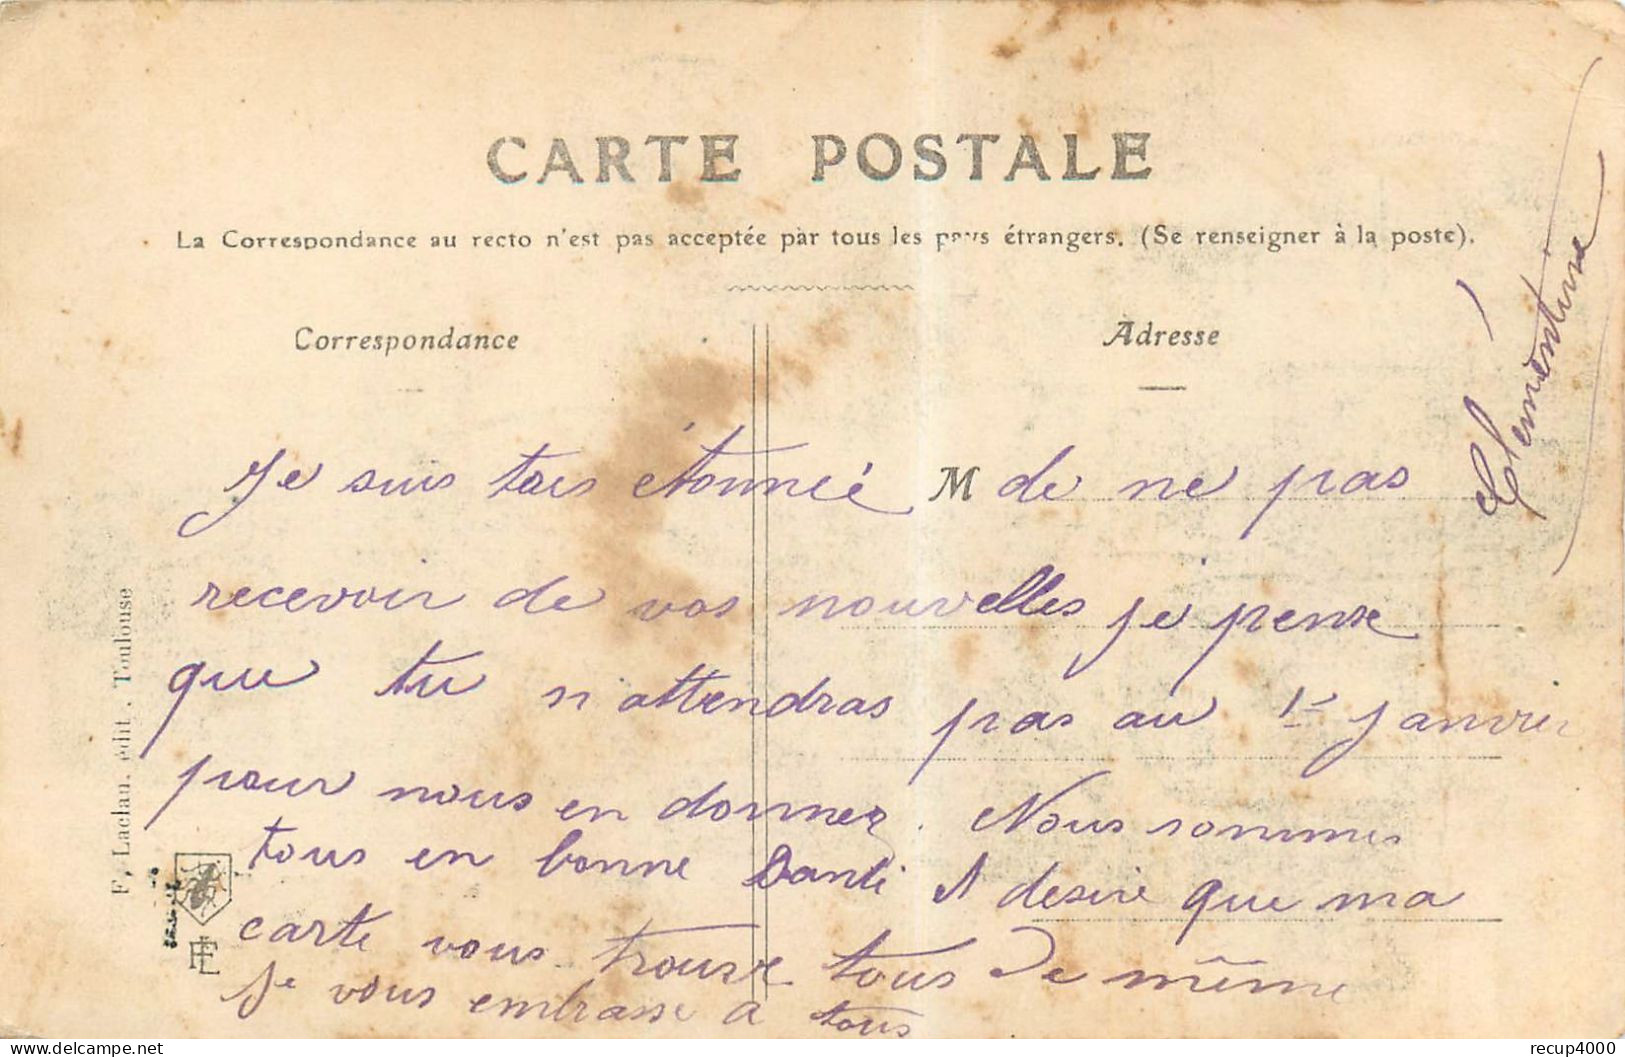 CARTE POSTALE
La Correspondance au recto n'est pas acceptée par tous les pays étrangers. (Se renseigner à la poste).
Correspondance
Adresse
Je suis tais étonnéé M de ne pas
recevoir de vos nouvelles je pense
que tu n'attendras pas au 1er janvier
pour nous en donner. Nous sommes
tous en bonne Santé desire que ma
carte vous trouve tous de même
Je vous embrasse a tous
Clémentine
F. Laclau. édit. Toulouse
FL
recup4000